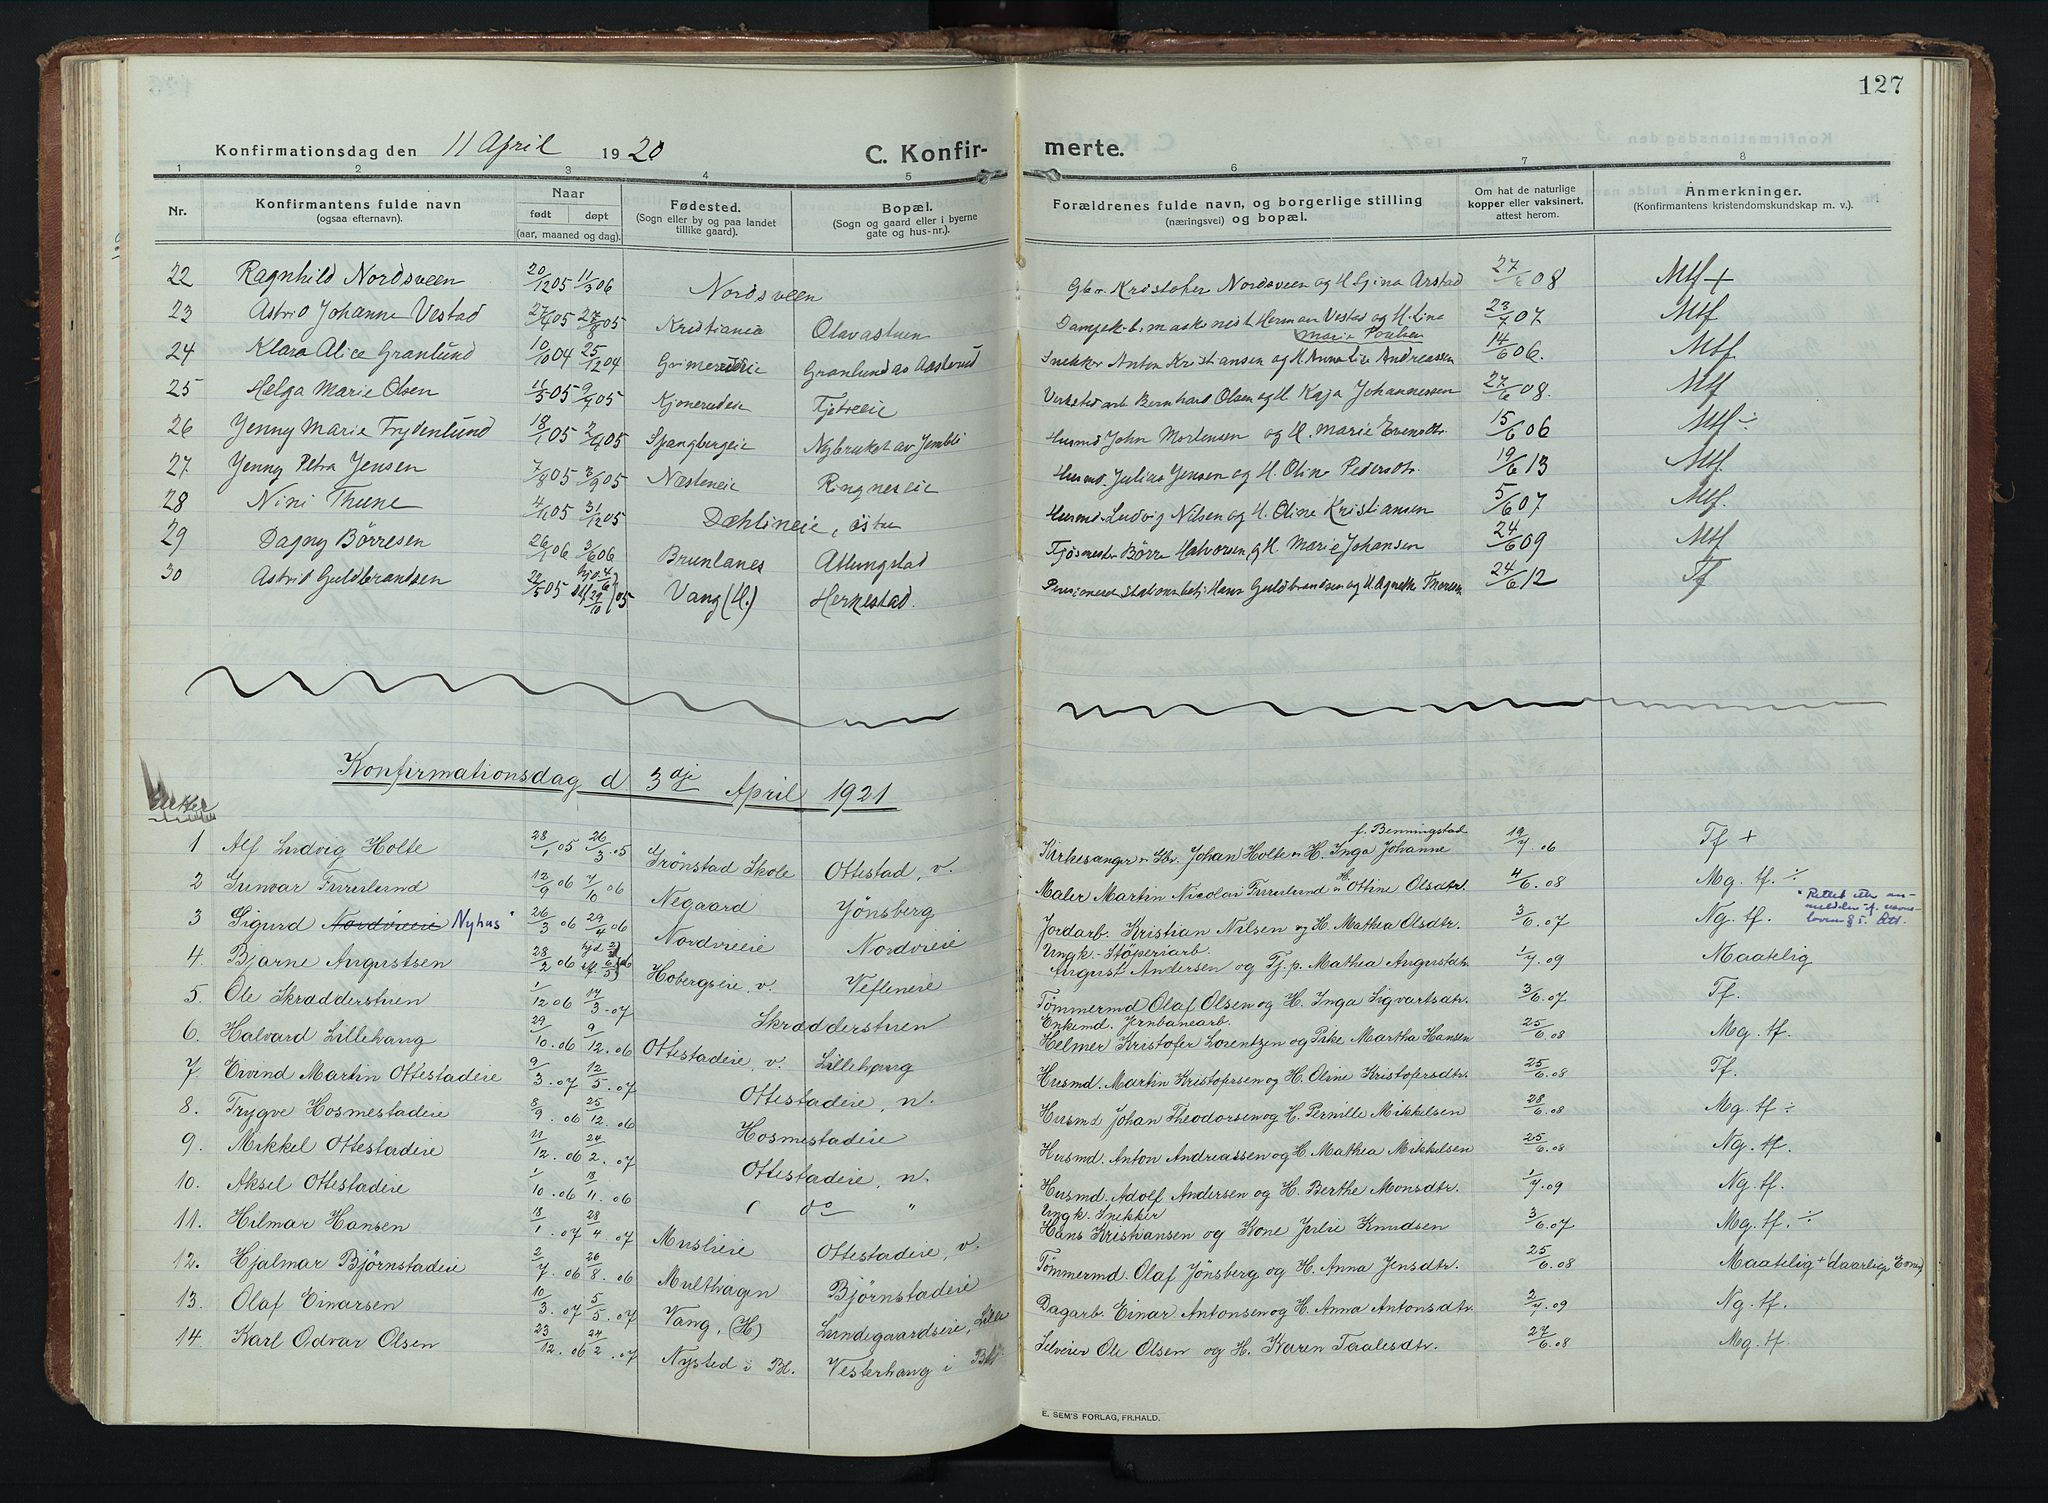 127
Konfirmationsdag den 11 April 1920 C. Konfirmerte.
1 2 3 4 5 6 7 8
Nr. Konfirmantens fulde navn (ogsaa efternavn). Naar født døpt (aar, maaned og dag). Fødested. (Sogn eller by og paa landet tillike gaard). Bopæl. (Sogn og gaard eller i byerne gate og hus-nr.). Forældrenes fulde navn, og borgerlige stilling (næringsvei) og bopæl. Om hat de naturlige kopper eller vaksinert, attest herom. Anmerkninger. (Konfirmantens kristendomskundskap m. v.).
22 Ragnhild Nordsveen 20/12 05 11/3 06 Nordsveen Gbr Kristofer Nordsveen og H Gina Arstad 27/6 08 Mtf +
23 Astrid Johanne Vestad 27/4 05 27/8 05 Kristiania Olavastuen Herman Vestad og H. Line Marie Poulsen 23/7 07 Mtf
24 Klara Alice Granlund 10/10 04 25/12 04 Granlund av Aasterud Snekker Anton Kristiansen og H. Andreassen 14/6 06. Mtf
25 Helga Marie Olsen 9/7 05 Kjonerudeie Tjetreeie Verksted arb Bernhard Olsen og H Kaja Johannessen 27/6 08. Mtf
26 Jenny Marie Frydenlund 18/1 05 2/4 05 Spangbergeie Nybruket av Jembli Husmd John Mortensen og H. Marie Evensdtr. 15/6 06 Mtf ÷
27 Jenny Petra Jensen 7/8 05 3/9 05 Næsteneie Ringneseie Husmd. Julius Jensen og H. Oline Pedersdtr. 19/6 13 Mtf.
28 Nini Thune 31/12 05 Dæhlineie, östre Husmd. Ludvig Nilsen og H. Oline Kristiansen 5/6 07 Mtf.
29 Dagny Börresen 26/1 06 3/6 06 Brunlanes Atlungstad Fjösmester Börre Halvorsen og H. Marie Johansen 24/6 09 Mtf
30 Astrid Guldbrandsen 22/5 05 29/10 05 Vang (H.) Herkestad. Hans Guldbrandsen og H. Agnethe Thoresen 24/6 12 Tf
Konfirmationsdag d 3dje April 1921
1 Alf Ludvig Holte 28/1 05 26/3 05 Grönstad Skole Ottestad, v. Kirkesanger Johan Holte og H. Inga Johanne f. Benningstad 19/7 06 Tf +
2 Gunvar Furulund 12/9 06 7/10 06 Negaard Jönsberg Maler Martin Nicolai Furulund og H. Ottine Olsdtr. 4/6. 08 Mg. tf. ÷
3 Sigurd Nordvieie Nyhus 26/3 06 29/4 06 Nordvieie Nordvieie Jordarb. Kristian Nilsen og H. Mathea Olsdtr. 3/6. 07 Ng. tf.
4. Bjarne Augustsen 28/2 06 Hobergseie, v. Vefleneie Ungk. Stöperiarb. August Andersen og Tj. p. Mathea Augustdtr 1/7. 09 Maatelig
5. Ole Skrædderstuen 1/12 06 17/3. 07 Skrædderstuen Tömmermd Olaf Olsen og H. Inga Sigvartsdtr. 3/6. 07 Tf.
6. Halvard Lillehaug 29/10. 06 9/12. 06 Ottestadeie, v. Lillehaug Enkemd. Jernbanearb. Helmer Kristofer Lorentzen og Pike Martha Hansen 25/6. 08 Mg. tf.
7. Eivind Martin Ottestadeie 9/3. 07 12/5. 07 Ottestadeie, n. Husmd. Martin Kristofersen og H. Oline Kristofersdtr. 25/6. 08 Tf.
8. Trygve Hosmestadeie 8/9. 06 25/12. 06 Hosmestadeie Husmd Johan Theodorsen og H. Pernille Mikkelsen 28/6. 08 Mg. tf ÷
9. Mikkel Ottestadeie 11/12. 06 24/2. 07 Ottestadeie, n. Husmd. Anton Andreassen og H. Mathea Mikkelsen 25/6. 08 Ng. tf.
10. Aksel Ottestadeie 1/10. 06 13/11. 06 do " Husmd. Adolf Andersen og H. Berthe Monsdtr. 1/7. 09 Ng. tf.
11. Hilmar Hansen 18/1. 07 28/4. 07 Muslieie Ottestadeie, v. Ungk. Snekker Hans Kristiansen og Kone Julie Knudsen 3/6. 07 Mg. tf. ÷
12. Hjalmar Björnstadeie 2/7. 06 26/8. 06 Multhagen Björnstadeie Tömmermd. Olaf Jönsberg og H. Anna Jensdtr. 25/6. 08 Maatelig + daarlige Evner
13. Olaf Einarsen 10/3. 07 5/5. 07 Vang, (H) Lundegaardseie, Lille Dagarb. Einar Antonsen og H. Anna Antonsdtr. 2/7. 09 Ng. tf.
14. Karl Odvar Olsen 23/12. 06 24/2. 07 Nysted i Bl. Vesterhaug i Bl. Selveier Ole Olsen og H. Karen Taalesdtr. 27/6. 08 Mg. tf.
E. SEM'S FORLAG, FR.HALD.